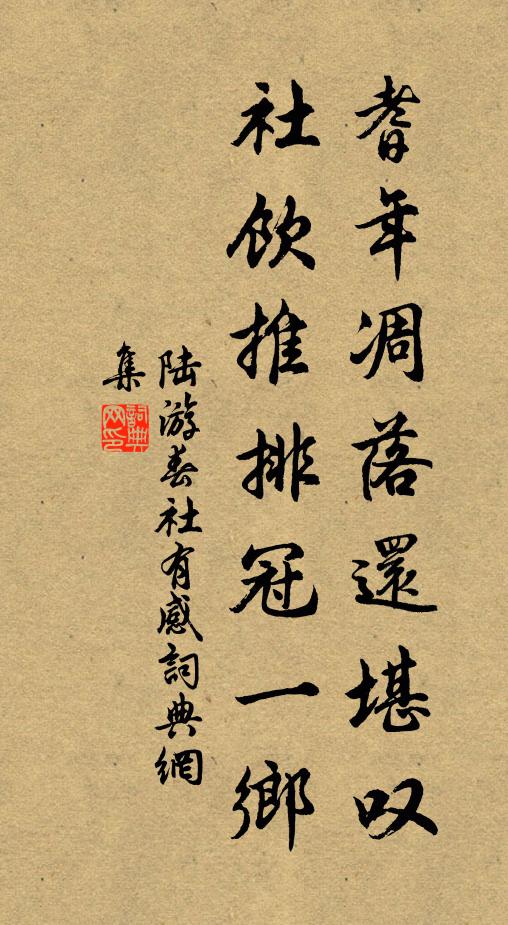 耆年凋落還堪叹
社飲推排冠一鄉
陆游春社有感詞典網
集
詞典网印